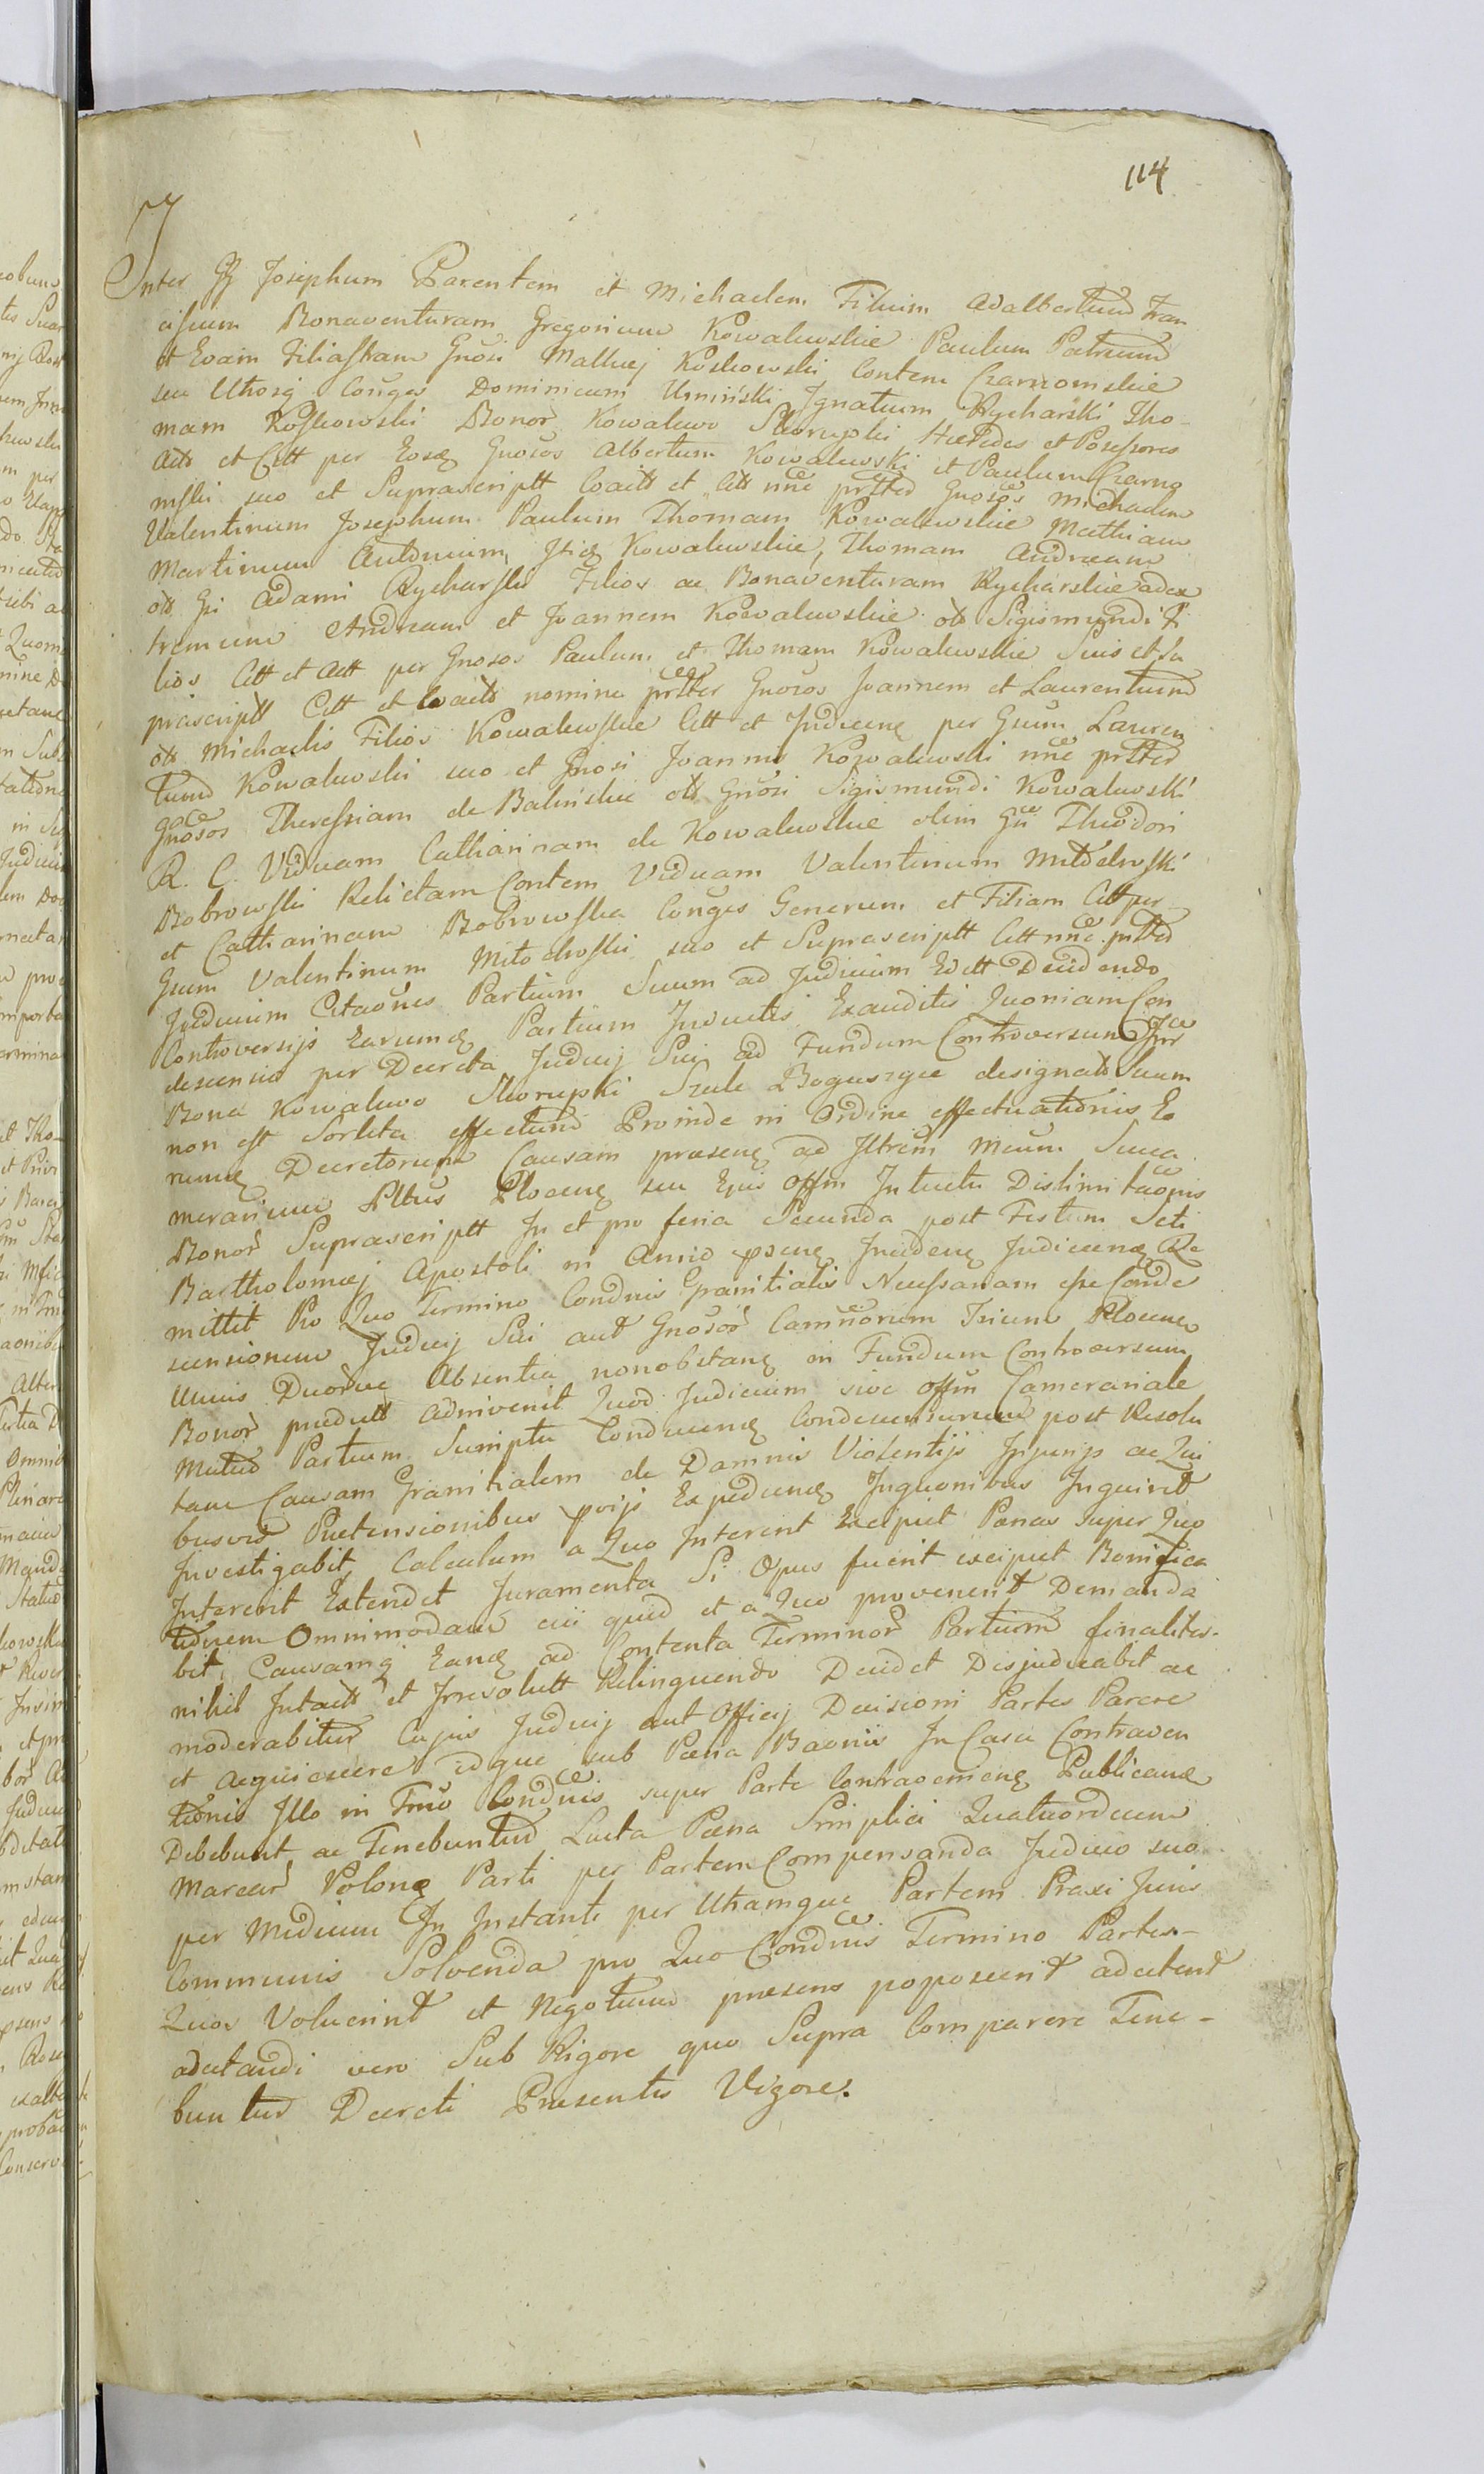 114
Inter GG Josephum Parentem et Michaelem Filium Adalbertum Fran
ciscum Bonaventuram Gregorium Kowalewskie Paulum Patruum
et Evam Filiastram Gnosi Mathej Koskowski Contem Czarnomskie
seu Uthosq Conges Dominicum Uminski Ignatium Rycharski Tho-
mam Koskowski Bonor Kowalewo Skorupki Hæredes et Possessores
Actt et Citt per Eosq Gnosos Albertum Kowalewski et Paulum Czarno
mski suo et Suprascriptt Coactt et Citt nne prtter Gnosos Michaelem
Valentinum Josephum Paulum Thomam Kowalewskie Mathiam
Martinum Antonium Itiq Kowalewskie, Thomam Andream
ott Gsi Adami Rycharski Filios ac Bonaventuram Rycharskie adex
tremum Andream et Joannem Kowalewskie ott Sigismundi Fi
lios Citt et Actt per Gnosos Paulum et Thomam Kowalewskie Suis et Su
prascriptt Citt et Coactt nomine prtter Gnosos Joannem et Laurentium
ott Michaelis Filios Kowalewskie Citt et Judicenq per Gsum Lauren
tium Kowalewski suo et Gnosi Joannis Kowalewski nne prtter
Gnosos Theressiam de Balinskie ott Gnosi Sigismundi Kowalewski
R. C. Viduam Catharinam de Kowalewskie olim Gn Theodori
Bobrowski Relictam Contem Viduam Valentinum Mitdelewski
et Catharinam Bobrowska Conges Generum et Filiam Citt per
Gsum Valentinum Mitochoski suo et Suprascriptt Citt nne prtter
Judicium Citaones Partium Suum ad Judicium Editt Decidendo
Controversijs Earumq Partium Inductis Exauditis Quoniam Con
descensio per Decreta Judicij Sui ad Fundum Controversum Inr
Bona Kowalewo Skorupki Szule Boguszyce designatt Suum
non est Sortita effectum Proinde in Ordine effectuationis Eo
rumq Decretorum Causam præsenq ad Iltrem Mcum Succa
merarium Pltus Plocenq seu Ejus Offm Intuitu Dislimitaonis
Bonor Suprascriptt In et pro feria Secunda post Festum Scti
Bartholomæj Apostoli in Anno psenq Incidenq Judicenq Re
mittit Pro Quo Termino Condnis Granitialis Necessariam esse Conde
scensionem Judicij Sui aut Gnosor Camrorum Trium Plocen
Unius Duorve Absentia nonobstanq in Fundum Controversum
Bonor prædictt adinvenit Quod Judicium sive Offm Camerariale
Mutuo Partium Sumptu Conducenq Condescensurum post Resolu
tam Causam Granitialem de Damnis Violentijs Injurijs ac Qui
busvis Prætensionibus pvijs Expediunq Inquonibus Inquiret
Investigabit, Calculum a Quo Intererit Excipiet Pænas super Quo
Intererit Extendet Juramenta Si Opus fuerit excipiet Bonifica
tionem Omnimodam cui quid et a Quo provenerit Demanda
bit, Causamq Eanq ad Contenta Terminor Partium finaliter
nihil Intactt et Irresolutt Relinquendo Decidet Disjudicabit ac
moderabitur Cujus Judicij aut Officij Decisioni Partes Parere
et acquiescere idque sub Pæna Baonis In Casu Contraven
tionis Illo in Trno Condnis super Parte Contravenienq Publicanæ
Debebunt ac Tenebuntur Lucta Pæna Simplici Quatuordecim
Marcar Polonq Parti per Partem Compensanda Judicio suo
per Medium In Instanti per Utramque Partem Praxi Juris
Communis Solvenda pro Quo Condnis Termino Partes-
Quos Voluerint et Negotium præsens poposcerit adcitent
adcitandi vero Sub Rigore quo Supra Comparere Tene-
buntur Decreti Præsentis Vigore.